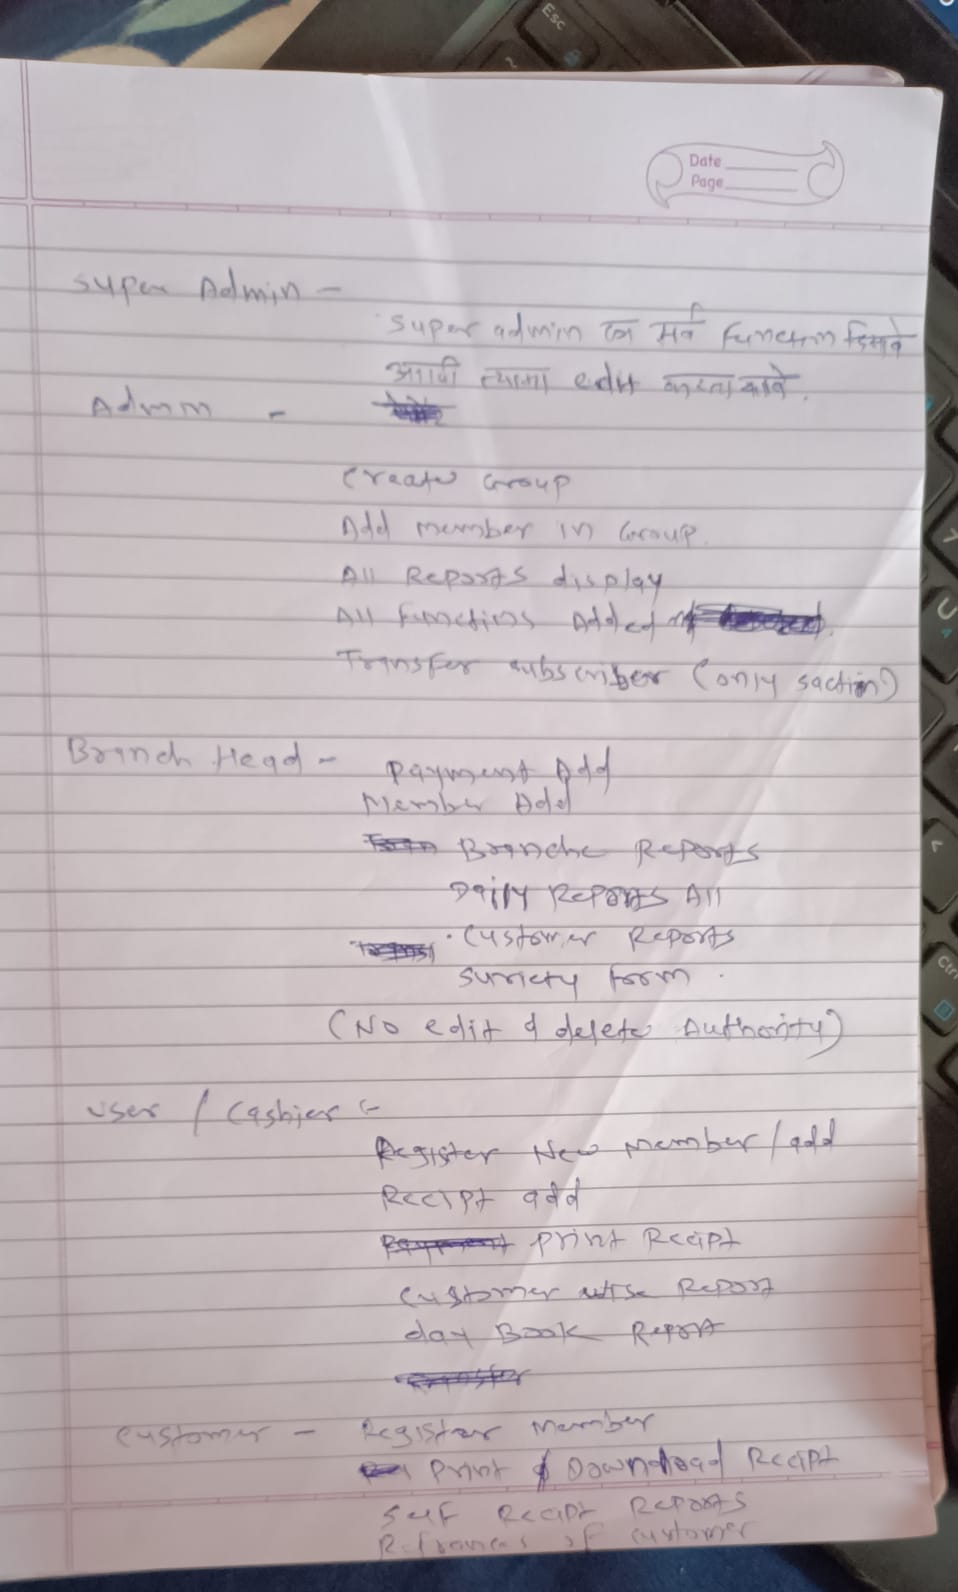 Esc
Date
Page
Super Admin -
Super admin ला सर्व function दिसावे
आणी त्याला edit करता यावे.
Admin -
Create Group
Add member in Group.
All Reports display
All functions Added
Transfer subscriber (only saction)
Branch Head - Payment Add
Member Add
Branche Reports
Daily Reports All
Customer Reports
Suriety form.
(No edit & delete Authority)
User / Cashier :-
Register New Member / add
Recipt add
Print Recipt
Customer wise Report
day Book Report
Customer - Register Member
Print & Download Recipt
Self Recipt Reports
Refrances of customer
U
Ctrl